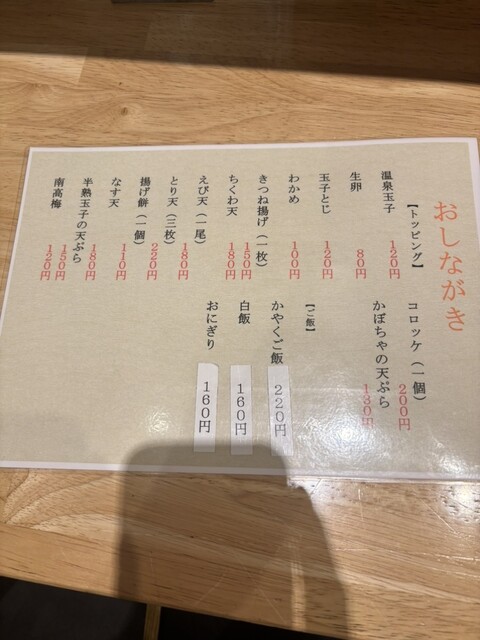 おしながき
【トッピング】
温泉玉子 120円
生卵 80円
玉子とじ 120円
わかめ 100円
きつね揚げ（一枚） 150円
ちくわ天 180円
えび天（一尾） 180円
とり天（三枚） 220円
揚げ餅（一個） 110円
なす天 180円
半熟玉子の天ぷら 150円
南高梅 120円
コロッケ（一個） 200円
かぼちゃの天ぷら 130円
【ご飯】
かやくご飯 220円
白飯 160円
おにぎり 160円